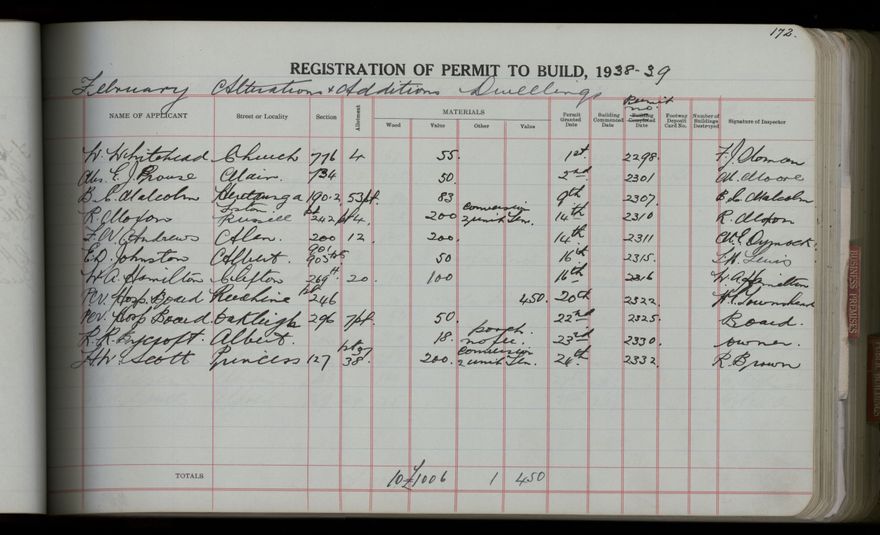 172.
REGISTRATION OF PERMIT TO BUILD, 1938-39
February Alterations & Additions Dwellings
NAME OF APPLICANT Street or Locality Section Allotment MATERIALS Wood Value Other Value Permit Granted Date Building Commenced Date Permit no. Building Completed Date Footway Deposit Card No. Number of Buildings Destroyed Signature of Inspector
W. Whitehead Church 776 4 55. 1st 2298.
Mrs. E. J. Prouse Main. 734 50. 2nd 2301 M. Moore
B. L. Malcolm 190.2, 53pt. 83 9th 2307. B. L. Malcolm
R. Moxon Russell 242 pt 4. 200 Conversion 2 unit Ten. 14th 2310 R. Moxon
F. W. Andrews Alan. 200 12 200. 14th 2311
E. D. Johnston Albert. 50 16th 2315. Lewis
W. A. Hamilton Clifton 269 20. 100 16th 2316 W. A. Hamilton
P.N. Hosp. Board 246 450. 20th 2322. Townshend
P.N. Hosp. Board Oakleigh 296 7pt. 50. 22nd 2325. Board.
Albert. 18. Porch. no fee. 23rd 2330. owner.
H. W. Scott Princess 127 38. 200. Conversion 2 unit Ten. 24th 2332. R. Brown
TOTALS 10 £1006 1 450
BUSINESS PREMISES